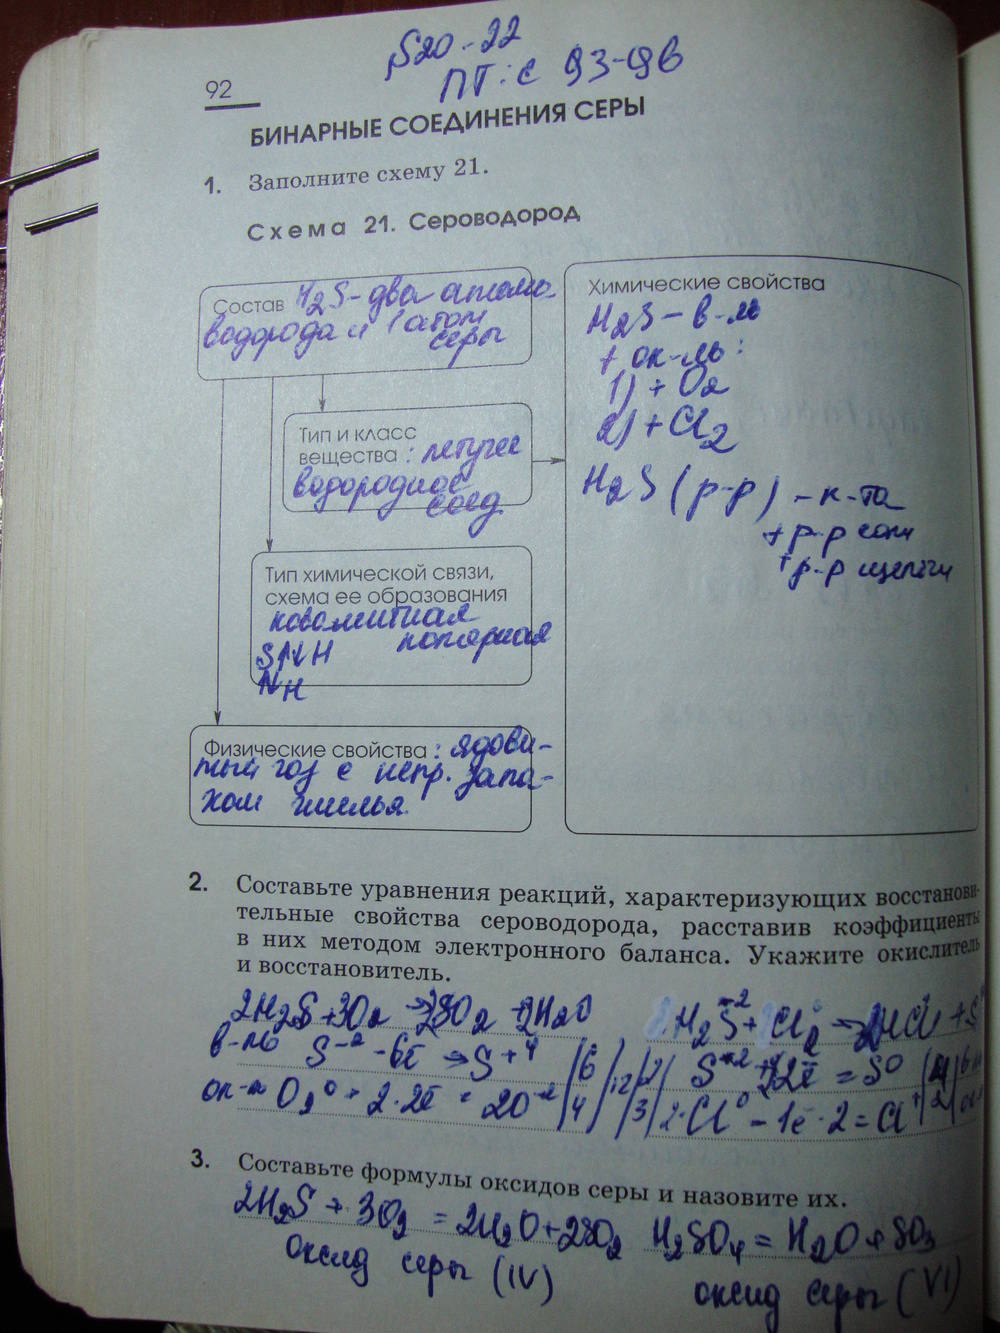 §20-22
ПТ: с 93-96
92
БИНАРНЫЕ СОЕДИНЕНИЯ СЕРЫ
1. Заполните схему 21.
Схема 21. Сероводород
Состав H2S - два атома
водорода и 1 атом
серы
Тип и класс
вещества : летучее
водородное
соед.
Тип химической связи,
схема ее образования
ковалентная
полярная
Физические свойства : ядови-
тый газ с непр. запа-
хом гнилья.
Химические свойства
H2S - в-ль
+ ок-ль :
1) + O2
2) + Cl2
H2S (р-р) - к-та
+ р-р соли
+ р-р щелочи
2. Составьте уравнения реакций, характеризующих восстанови-
тельные свойства сероводорода, расставив коэффициенты
в них методом электронного баланса. Укажите окислитель
и восстановитель.
2H2S + 3O2 → 2SO2 + 2H2O
H2S-2 + Cl2 → 2HCl + S
в-ль S-2 - 6е → S+4 | 6 | 12 | 2
S-2 2е = S0
ок-ль O20 + 2·2е = 2O-2 | 4 | | 3
2·Cl0 - 1е·2 = Cl
3. Составьте формулы оксидов серы и назовите их.
2H2S + 3O2 = 2H2O + 2SO2 H2SO4 = H2O + SO3
оксид серы (IV)
оксид серы (VI)